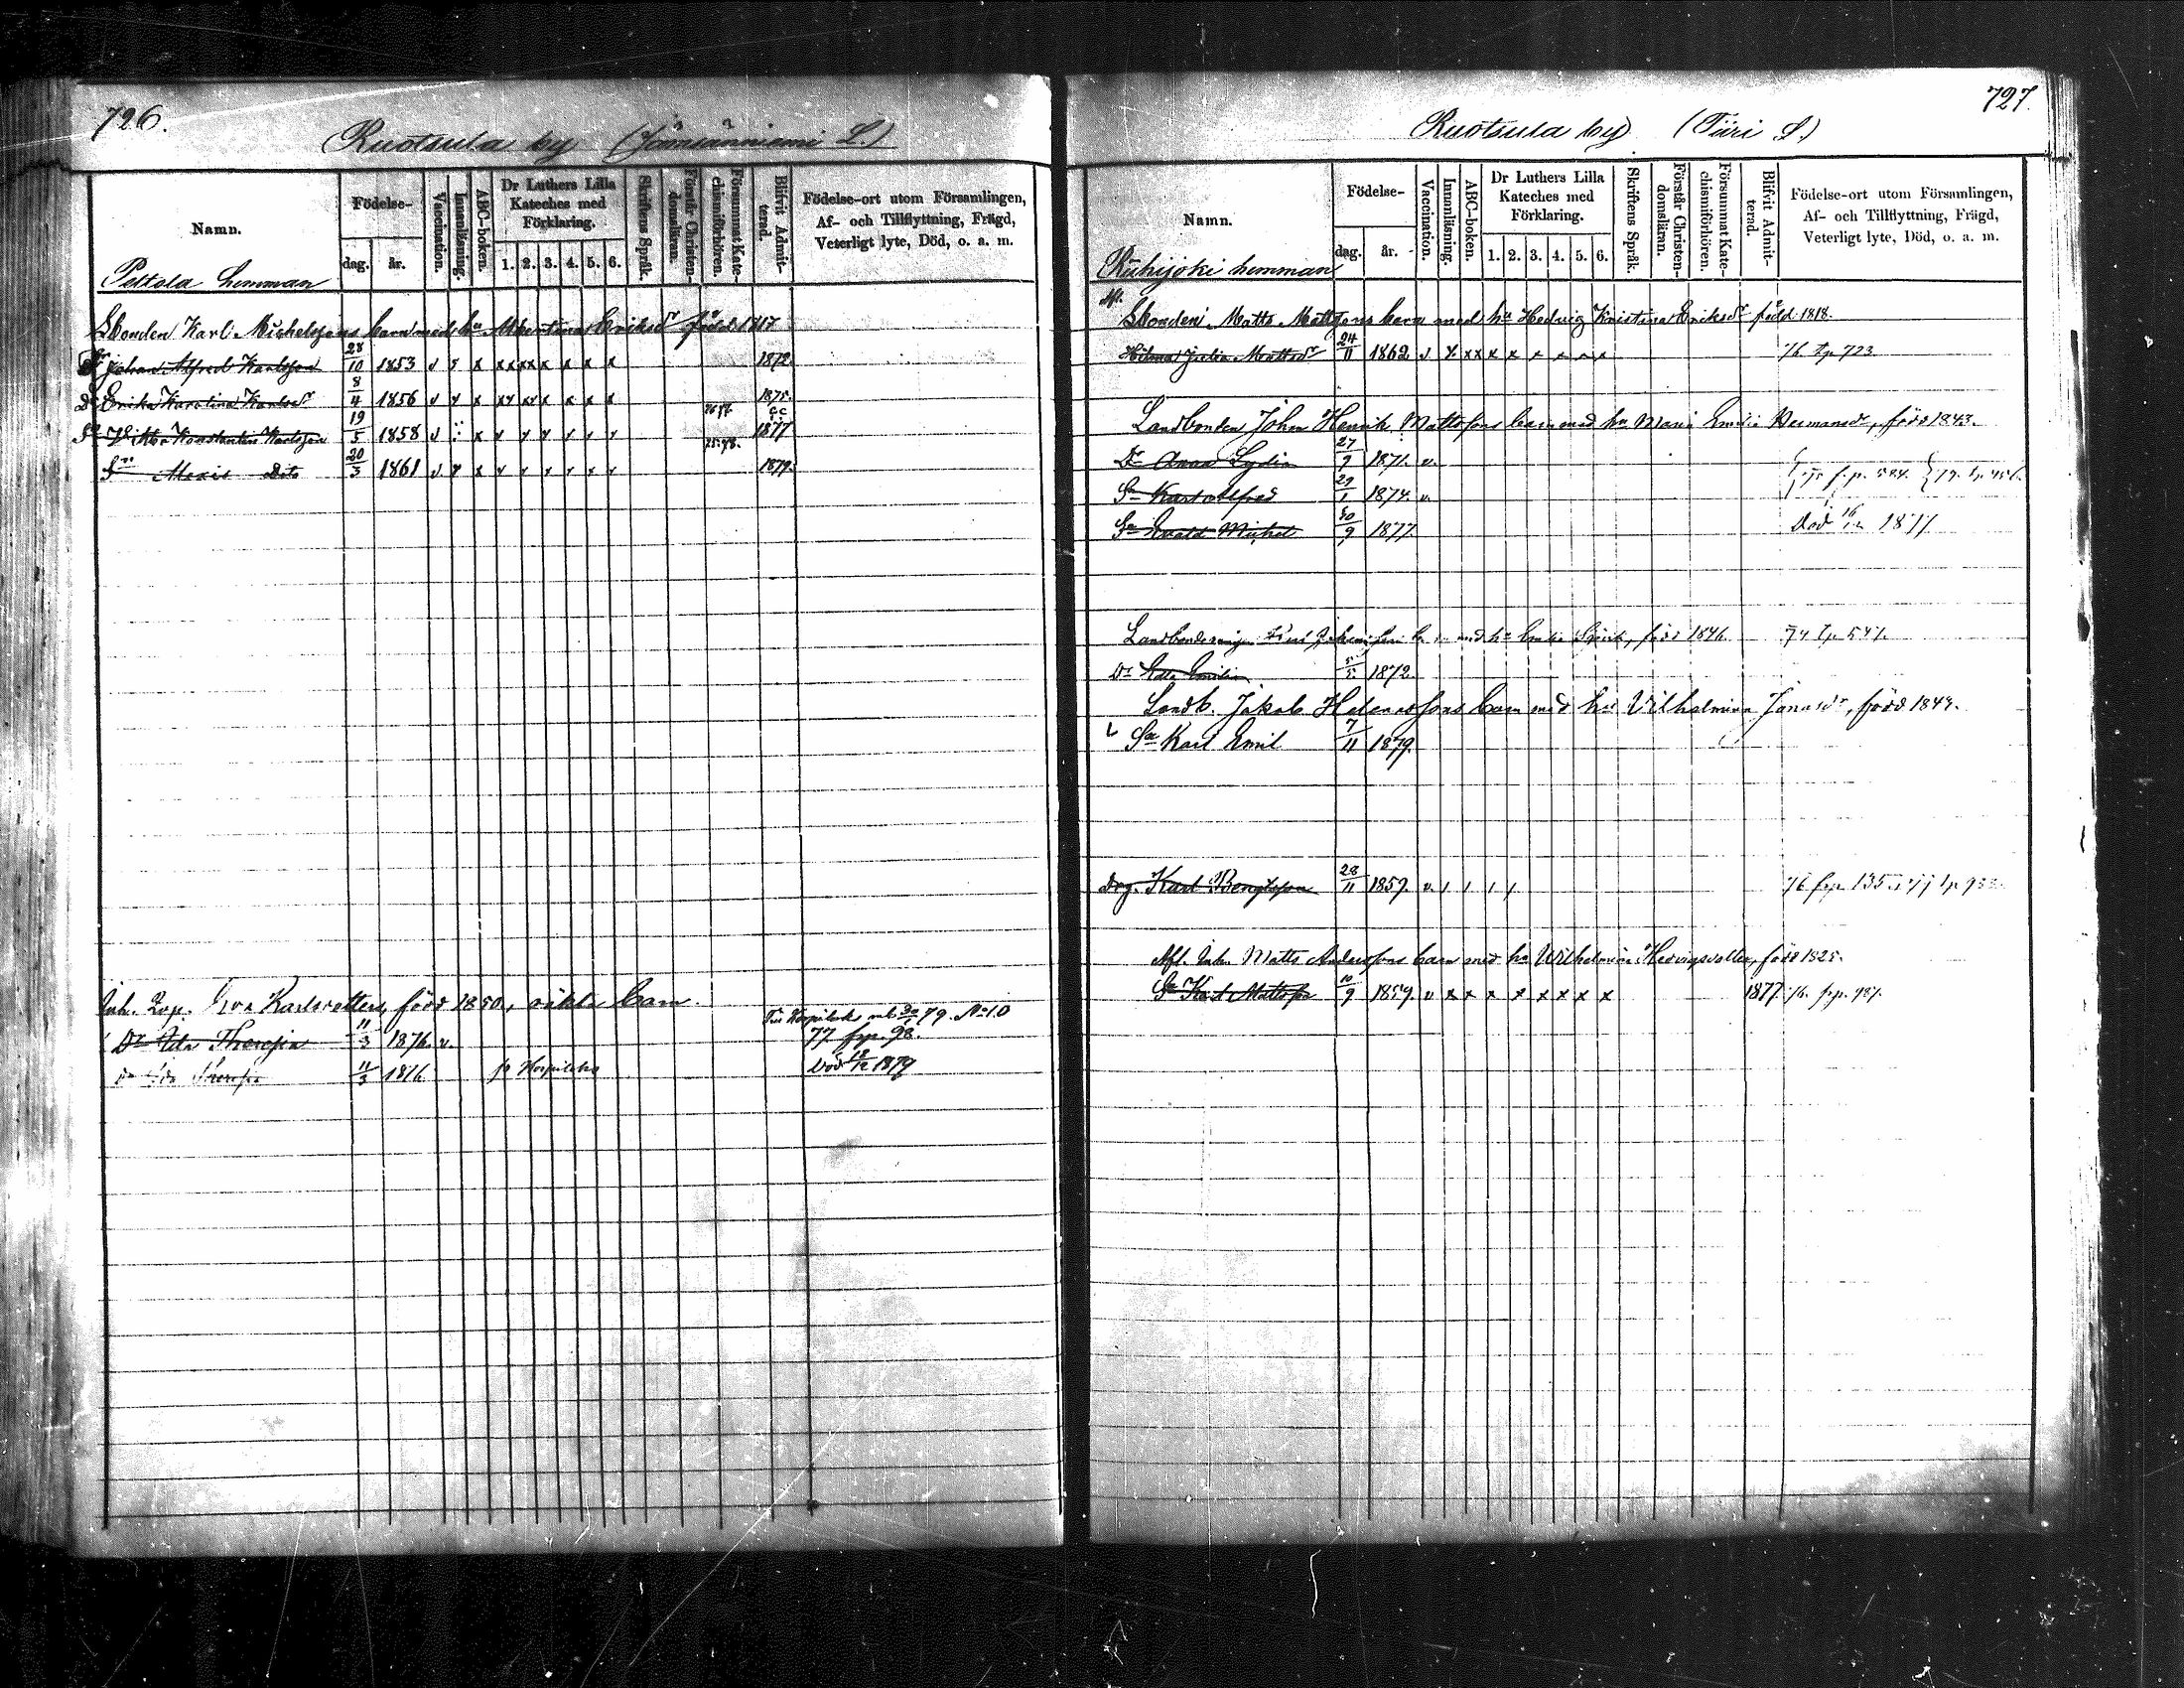 726.
Ruotsula by (Jämsänniemi L.)
Namn.
Födelse-
dag.
år.
Vaccination.
Innanläsning.
ABC-boken.
Dr Luthers Lilla Kateches med Förklaring.
1. 2. 3. 4. 5. 6.
Skriftens Språk.
Förstår Christen-domsläran.
Försummat Kate-chismiförhören.
Blifvit Admit-terad.
Födelse-ort utom Församlingen,
Af- och Tillflyttning, Frägd,
Veterligt lyte, Död, o. a. m.
Peltola hemman
Lbonden Karl Michelssons barn med hu Albertina Eriksdr född 1817
Sn Johan Alfred Karlsson 28/10 1853 v x x xx xx x x x x 1872
Dr Erika Karolina Karlsdr 8/4 1856 v x x xx xx x x x x 1875
Karlsson 19/5 1858 v x 1877
Sn Alexis Dito 20/3 1861 v x x x x x x x x 1879
Inh. Eva Karlsdotter, född 1850, oäkta barn.
Dr Ida Theresia 11/3 1876 v. 77 frp. 98.
79. No 10
Dr Ida Theresia 11/3 1876 fr Hospitalet Död 18/12 1879
727
Ruotsula by (Tiiri L.)
Namn.
Födelse-
dag.
år.
Vaccination.
Innanläsning.
ABC-boken.
Dr Luthers Lilla Kateches med Förklaring.
1. 2. 3. 4. 5. 6.
Skriftens Språk.
Förstår Christen-domsläran.
Försummat Kate-chismiförhören.
Blifvit Admit-terad.
Födelse-ort utom Församlingen,
Af- och Tillflyttning, Frägd,
Veterligt lyte, Död, o. a. m.
Riihijoki hemman
Afl. Lbonden Matts Mattssons barn med hu Hedvig Kristina Eriksdr född 1818.
Hilma Julia Mattsdr 24/11 1862 v x xx x x x x x x 76 tp 723
Landbonden Johan Henrik Mattssons barn med hu Maria Emilia Hermansdr, född 1843.
Dr Anna Lydia 27/9 1871. v.
Sn Karl Alfred 29/1 1874. v.
Sn Evald Michel 30/9 1877. Död 16/12 1877
med hu född 1846. 74 tp 541.
Dr Emilia 5/5 1872.
Landb. Jakob Helenassons barn med hu Vilhelmina Jonasdr, född 1849.
Sn Karl Emil 7/11 1879.
Drg. Karl Bengtsson 28/11 1859. v. / / / / 76 frp. 135
Afl. Inh. Matts Anderssons barn med hu Wilhelmina Hedvigsdotter, född 1825.
Sn Karl Mattsson 10/9 1859. v x x x x x x x x 1877. 76. frp. 987.